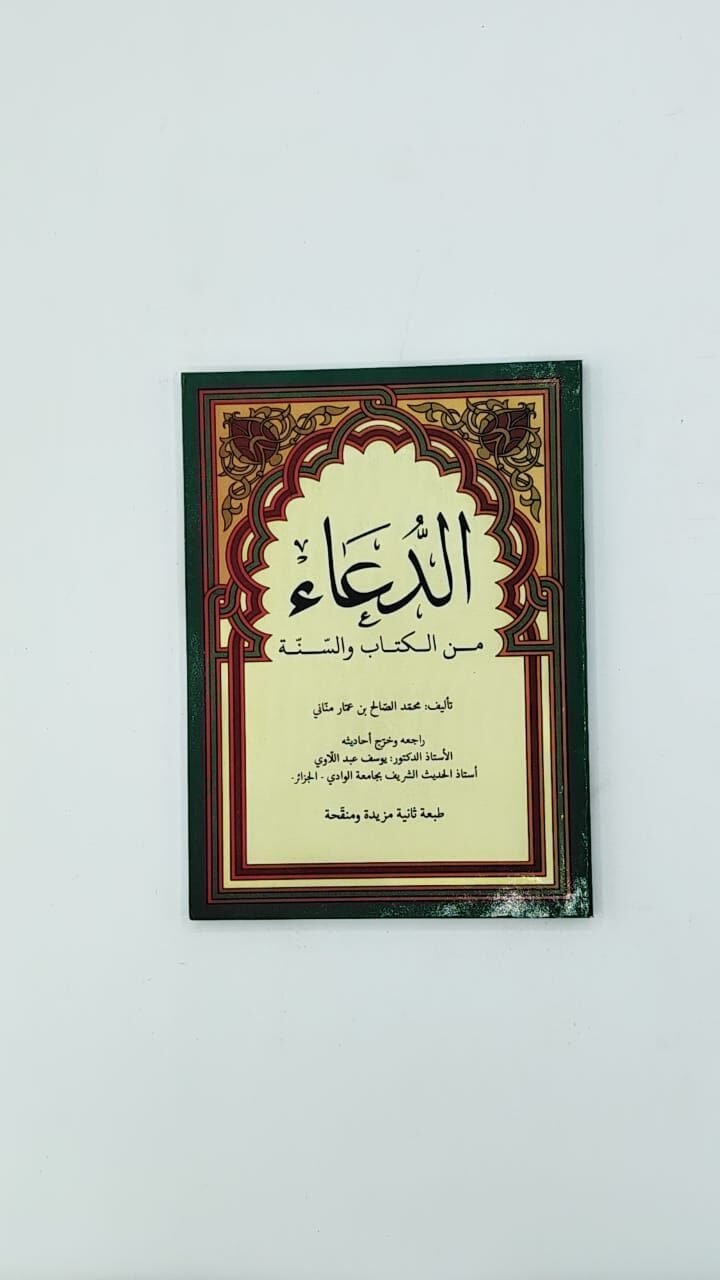 الدُّعَاءْ
من الكتاب والسّنّة
تأليف: محمّد الصّالح بن عمّار منّاني
راجعه وخرّج أحاديثه
الأستاذ الدكتور: يوسف عبد اللّاوي
أستاذ الحديث الشريف بجامعة الوادي - الجزائر-
طبعة ثانية مزيدة ومنقّحة